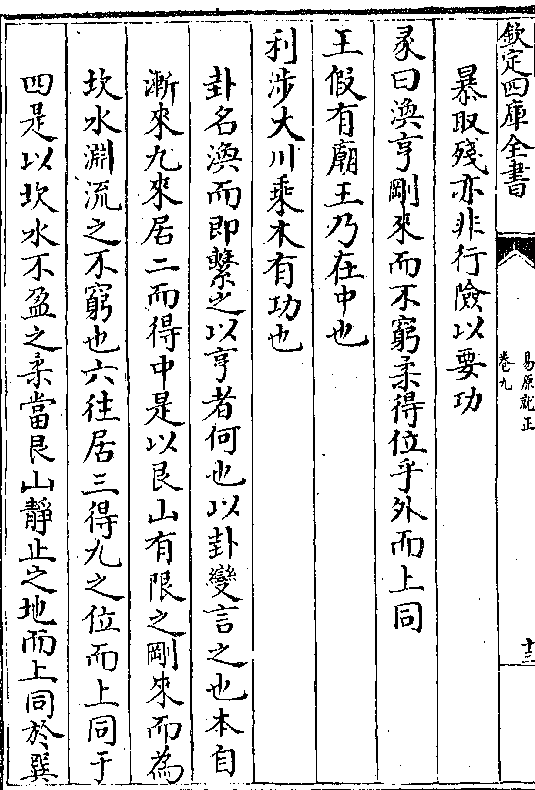 欽定四庫全書
易原就正
卷九
十三
暴取殘亦非行險以要功
彖曰渙亨剛來而不窮柔得位乎外而上同
王假有廟王乃在中也
利涉大川乘木有功也
卦名渙而即繫之以亨者何也以卦變言之也本自
漸來九來居二而得中是以艮山有限之剛來而為
坎水淵流之不窮也六往居三得九之位而上同于
四是以坎水不盈之柔當艮山靜止之地而上同於巽